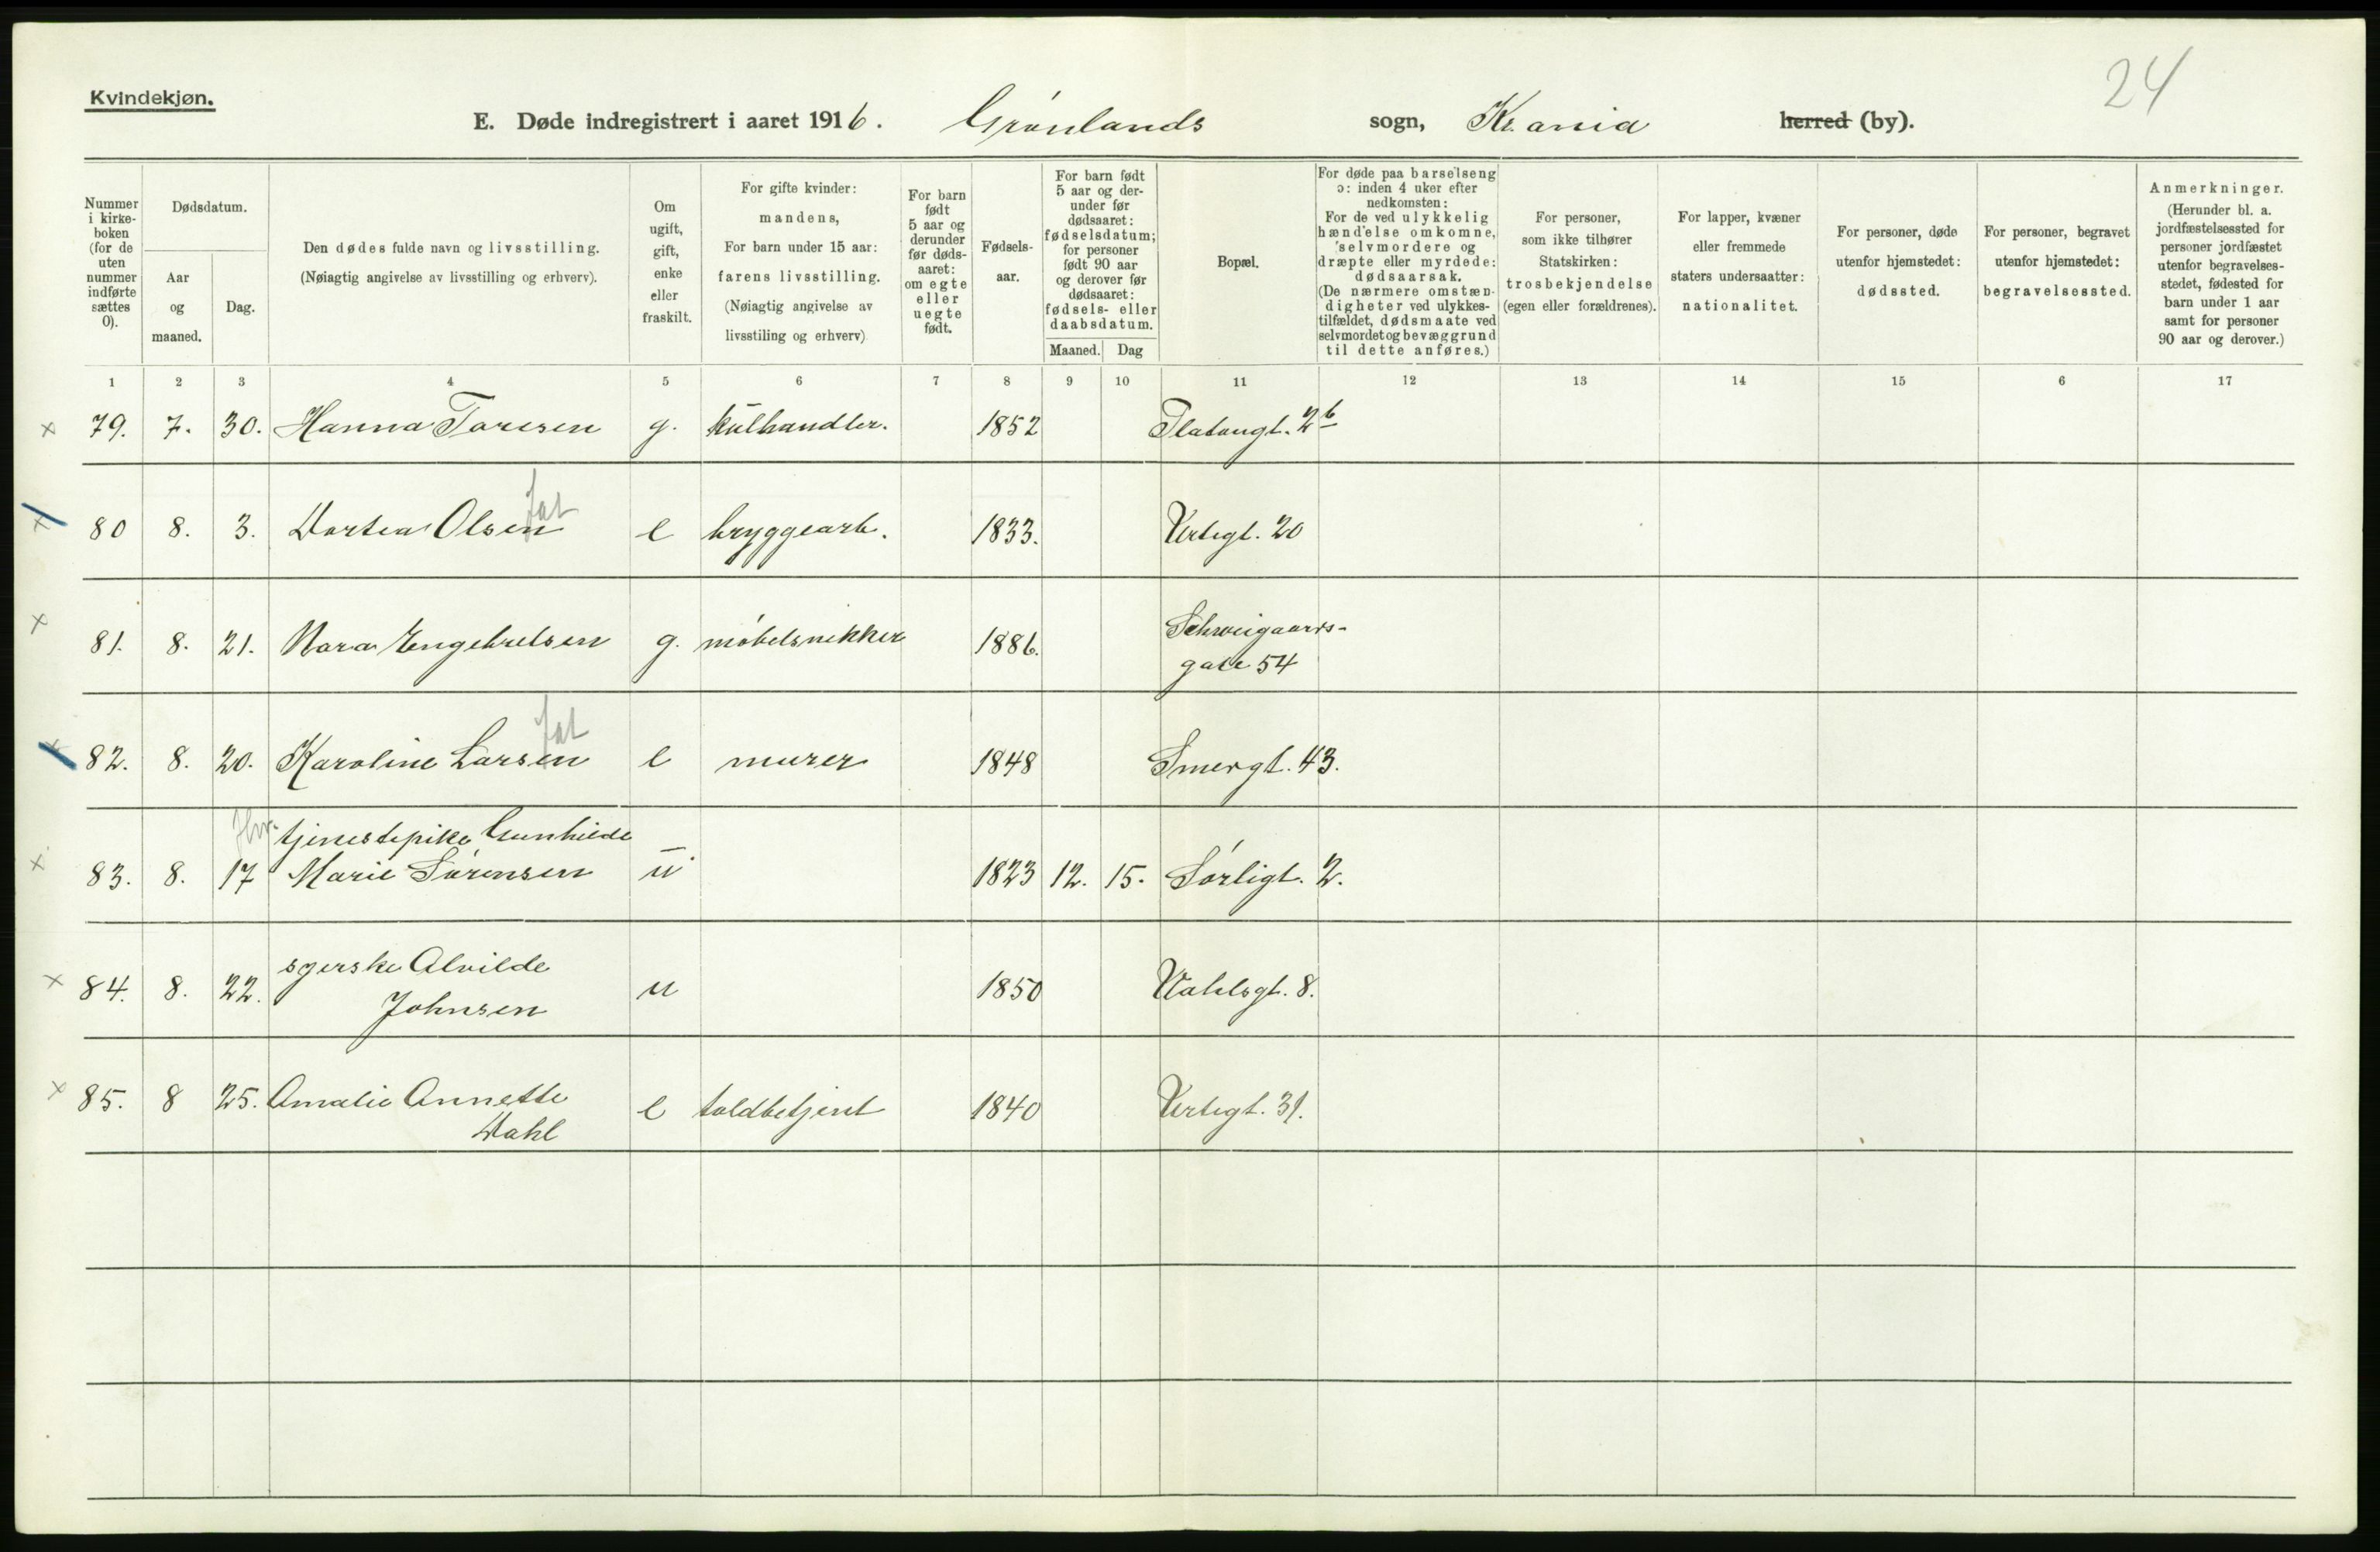 24
Kvindekjøn.
E. Døde indregistrert i aaret 1916. Grønlands sogn, Kr.ania herred (by).
Nummer i kirkeboken (for de uten nummer indførte sættes 0).
Dødsdatum.
Aar og maaned.
Dag.
Den dødes fulde navn og livsstilling.
(Nøiagtig angivelse av livsstilling og erhverv).
Om ugift, gift, enke eller fraskilt.
For gifte kvinder: mandens,
For barn under 15 aar: farens livsstilling.
(Nøiagtig angivelse av livsstiling og erhverv)
For barn født 5 aar og derunder før dødsaaret: om egte eller uegte født.
Fødselsaar.
For barn født 5 aar og derunder før dødsaaret: fødselsdatum; for personer født 90 aar og derover før dødsaaret: fødsels- eller daabsdatum.
Maaned. Dag
Bopæl.
For døde paa barselseng ɔ: inden 4 uker efter nedkomsten:
For de ved ulykkelig hændelse omkomne, selvmordere og dræpte eller myrdede: dødsaarsak.
(De nærmere omstændigheter ved ulykkestilfældet, dødsmaate ved selvmordet og bevæggrund til dette anføres.)
For personer, som ikke tilhører Statskirken: trosbekjendelse (egen eller forældrenes).
For lapper, kvæner eller fremmede staters undersaatter: nationalitet.
For personer, døde utenfor hjemstedet: dødssted.
For personer, begravet utenfor hjemstedet: begravelsessted.
Anmerkninger.
(Herunder bl. a. jordfæstelsessted for personer jordfæstet utenfor begravelsesstedet, fødested for barn under 1 aar samt for personer 90 aar og derover.)
1 2 3 4 5 6 7 8 9 10 11 12 13 14 15 6 17
x 79. 7. 30. Hanna Toresen g. kulhandler. 1852 Platougt. 2b
x 80 8. 3. Dortea Olsen e bryggearb. 1833. Urtegt. 20
x 81. 8. 21. Nora Engebretsen g. møbelsnekker 1886. Schweigaards-
gate 54
x 82. 8. 20. Karoline Larsen e murer 1848 Smergt. 43.
tjenestepike Gunhilde
x 83. 8. 17 Marie Sørensen u 1823 12. 15. Sørligt. 2.
syerske Alvilde
x 84. 8. 22. Johnsen u 1850 Wahlsgt. 8.
x 85. 8 25. Amalie Annette e toldbetjent 1840 Urtegt. 31.
Dahl